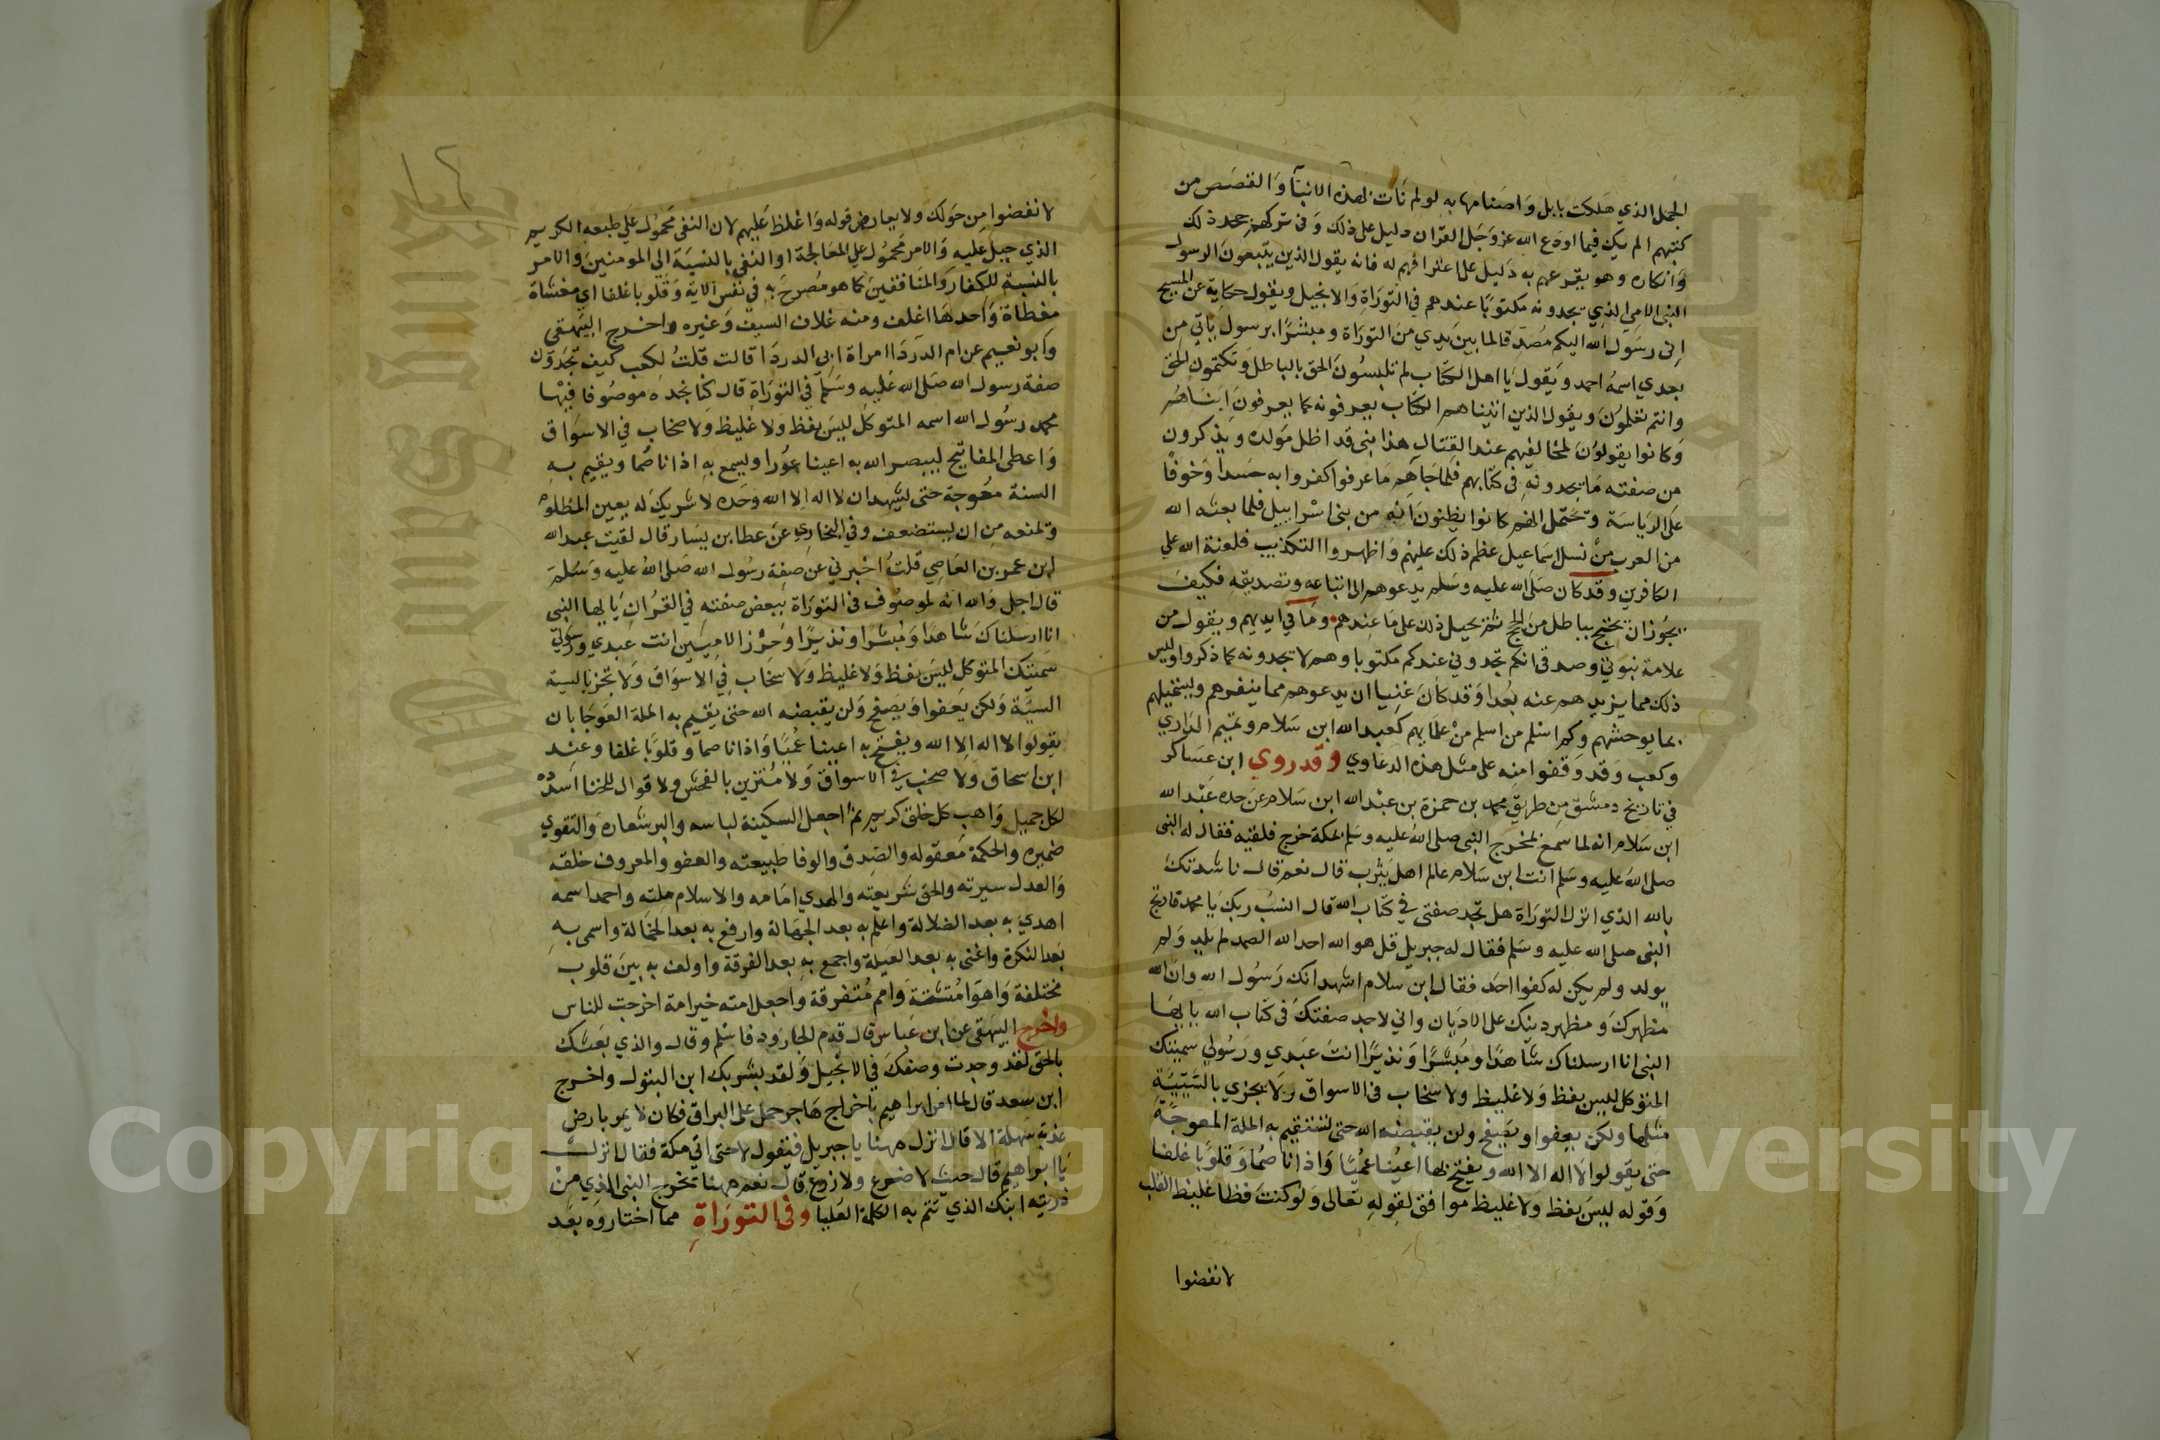 الجمل الذي هلكت بابل واصنامها به لو لم تات لهذه الانبآ والقصص من
كتبهم الم يكن فيما اودع الله عز وجل القران دليل على ذلك وفى تركهم جحد ذلك
وانكاره وهو يقرعهم به دليل على اعترافهم له فانه يقول الذين يتبعون الرسول
النبى الامى الذي يجدونه مكتوبًا عندهم في التوراة والانجيل ويقول حكاية عن المسيح
انى رسول الله اليكم مصدقا لما بين يدي من التوراة ومبشرًا برسول ياتي من
بعدي اسمه احمد ويقول يا اهل الكتاب لم تلبسون الحق بالباطل وتكتمون الحق
وانتم تعلمون ويقول الذين اتيناهم الكتاب يعرفونه كما يعرفون ابناهم
وكانوا يقولون لمخالفيهم عند القتال هذا نبى قد اظل مولده ويذكرون
من صفته ما يجدونه فى كتابهم فلما جاهم ما عرفوا كفروا به حسدا وخوفًا
على الرياسة ويحتمل انهم كانوا يظنون انه من بنى اسراييل فلما بعثه الله
من العرب من نسل اسماعيل عظم ذلك عليهم واظهروا التكذيب فلعنة الله على
الكافرين وقد كان صلى الله عليه وسلم يدعوهم الى اتباعه وتصديقه فكيف
يجوز ان يحتج بباطل من الحج ثم يحيل ذلك على ما عندهم وما في ايديهم ويقول من
علامة نبوتي وصدقى انكم تجدوني عندكم مكتوبا وهم لا يجدونه كما ذكر اوليس
ذلك مما يزيدهم عنه بعدا وقد كان غنيا ان يدعوهم مما ينفرهم ويستميلهم
بما يوحشهم وكم اسلم من اسلم من علمايهم كعبد الله ابن سلام وتميم الداري
وكعب وقد وقفوا منه على مثل هذه الدعاوي وقد روي ابن عساكر
في تاريخ دمشق من طريق محمد بن حمزة بن عبد الله ابن سلام عن جده عبد الله
ابن سلام انه لما سمع بمخرج النبى صلى الله عليه وسلم بمكة خرج فلقيه فقال له النبى
صلى الله عليه وسلم انت ابن سلام عالم اهل يثرب قال نعم قال ناشدتك
بالله الذي انزل التوراة هل تجد صفتى في كتاب الله قال انسب ربك يا محمد فارتج
النبى صلى الله عليه وسلم فقال له جبريل قل هو الله احد الله الصمد لم يلد ولم
يولد ولم يكن له كفوا احد فقال ابن سلام اشهد انك رسول الله وان الله
مظهرك ومظهر دينك على الاديان واني لاجد صفتك فى كتاب الله يا ايها
النبى انا ارسلناك شاهدًا ومبشرًا ونذيرًا انت عبدي ورسولي سميتك
المتوكل ليس بفظ ولا غليظ ولا سخاب فى الاسواق ولا يجزي بالسيئة
مثلها ولكن يعفوا ويصفح ولن يقبضه الله حتى تستقيم به الملة المعوجة
حتى يقولوا لا اله الا الله ويفتح بها اعينا عميًا واذانا صمًا وقلوبًا غلفا
وقوله ليس بفظ ولا غليظ موافق لقوله تعالى ولو كنت فظا غليظ القلب
لانفضوا
١٢
لانفضوا من حولك ولا يعارض قوله واغلظ عليهم لان النفى محمول على طبعه الكريم
الذي جبل عليه والامر محمول على المعالجة او النفى بالنسبة الى المومنين والامر
بالنسبة للكفار والمنافقين كما هو مصرح به في نفس الاية وقلوبا غلفا اي مغشاة
مغطاة واحدها اغلف ومنه غلاف السيف وغيره واخرج البيهقى
وابو نعيم عن ام الدردا امراة ابى الدردا قالت قلت لكعب كيف تجدون
صفة رسول الله صلى الله عليه وسلم في التوراة قال كنا نجده موصوفا فيها
محمد رسول الله اسمه المتوكل ليس بفظ ولا غليظ ولا صخاب في الاسواق
واعطى المفاتيح ليبصر الله به اعينا عورا ويسمع به اذانا صما ويقيم به
السنة معوجة حتى يشهد ان لا اله الا الله وحده لا شريك له يعين المظلوم
ويمنعه من ان يستضعف وفى البخاري عن عطا بن يسار قال لقيت عبد الله
ابن عمر بن العاصي قلت اخبرني عن صفة رسول الله صلى الله عليه وسلم
قال اجل والله انه لموصوف فى التوراة ببعض صفته في القران يا ايها النبى
انا ارسلناك شاهدا ومبشرا ونذيرًا وحرزا للاميين انت عبدي ورسولي
سميتك المتوكل ليس بفظ ولا غليظ ولا سخاب في الاسواق ولا تجز بالسية
السية ولكن يعفوا ويصفح ولن يقبضه الله حتى يقيم به الملة العوجا بان
يقولوا لا اله الا الله ويفتح به اعينا عميًا واذانا صما وقلوبًا غلفا وعند
ابن اسحاق ولا صخب في الاسواق ولا متزين بالفحش ولا قوال للخنا اسدده
لكل جميل واهب كل خلق كريم ثم اجعل السكينة لباسه والبر شعاره والتقوي
ضميره والحكمة معقوله والصدق والوفا طبيعته والعفو والمعروف خلقه
والعدل سيرته والحق شريعته والهدي امامه والاسلام ملته واحمد اسمه
اهدي به بعد الضلالة واعلم به بعد الجهالة وارفع به بعد الخمالة واسمى به
بعد النكرة واغنى به بعد العيلة واجمع به بعد الفرقة واولف به بين قلوب
مختلفة واهوا متشتتة وامم متفرقة واجعل امته خير امة اخرجت للناس
واخرج البيهقى عن ابن عباس قال قدم الجارود فاسلم وقال والذي بعثك
بالحق لقد وجدت وصفك في الانجيل ولقد بشر بك ابن البتول واخرج
ابن سعد قال لما امر ابراهيم باخراج هاجر حمل على البراق فكان لا يمر بارض
عذبة سهلة الا قال انزل ههنا يا جبريل فيقول لا حتى اتي مكة فقال انزل
يا ابراهيم قال حيث لا ضرع ولا زرع قال نعم ههنا يخرج النبى الذي من
ذرية ابنك الذي تتم به الكلمة العليا وفى التوراة مما اختاروه بعد
Copyright © King Saud University